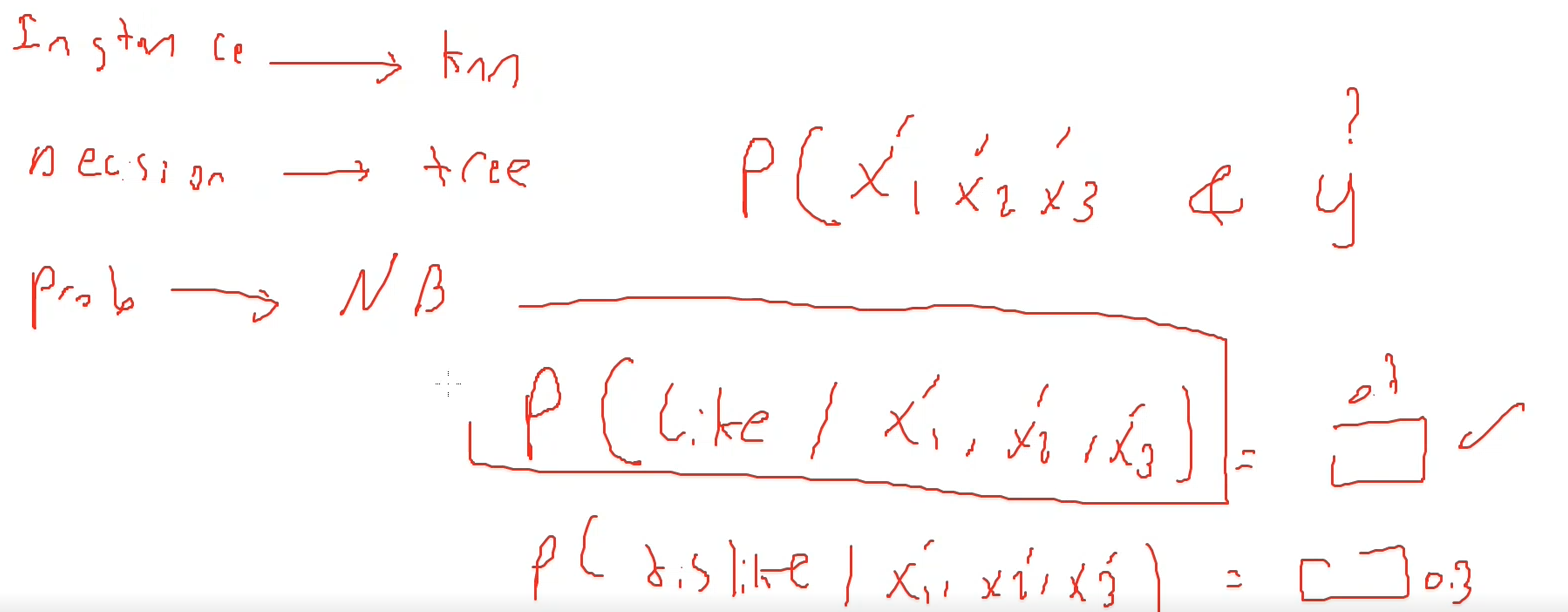 Instance → knn
Decision → tree
P(x́1 x́2 x́3 & y?
Prob → NB
P(Like / x́1, x́2, x́3) = 0.7 ✓
P(dislike | x́1, x́2, x́3) = 0.3